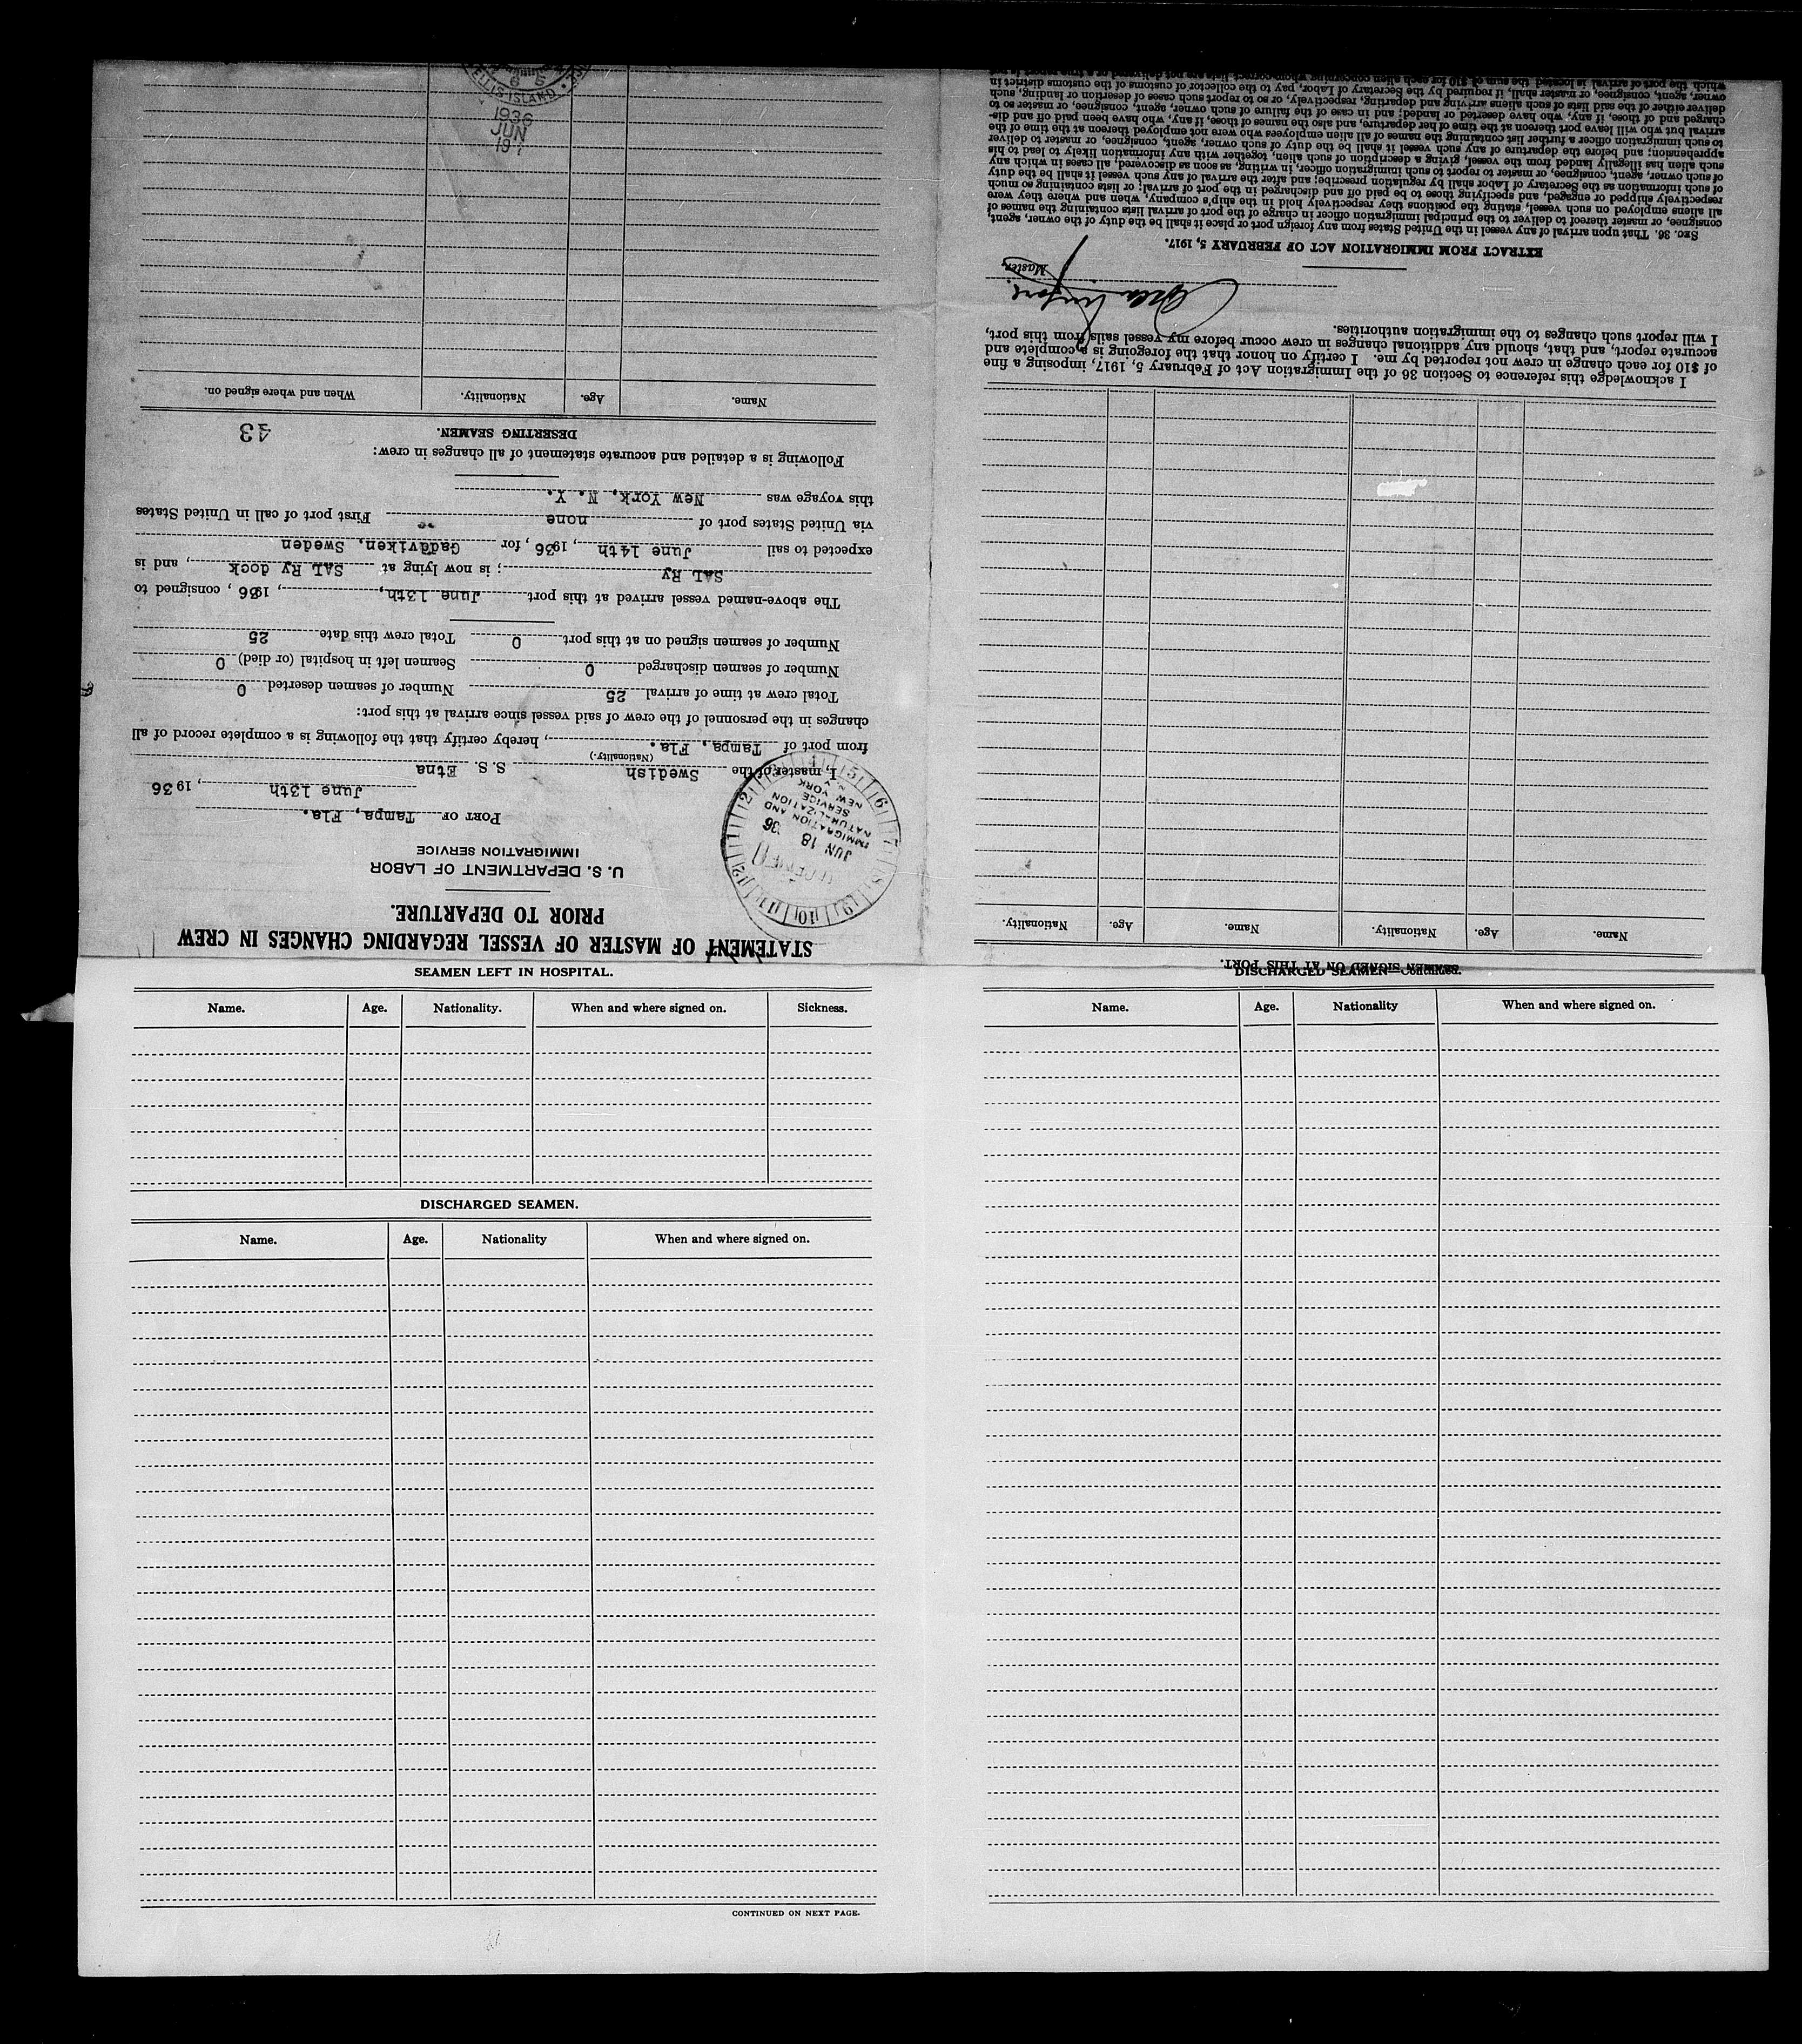 STATEMENT OF MASTER OF VESSEL REGARDING CHANGES IN CREW
PRIOR TO DEPARTURE.
U. S. DEPARTMENT OF LABOR
IMMIGRATION SERVICE
JUN 18 '36
IMMIGRATION AND
NATURALIZATION
SERVICE
NEW YORK
PORT OF Tampa, Fla.
June 13th, 1936
I, master of the Swedish S.S. Etna
(Nationality.)
from port of Tampa, Fla., hereby certify that the following is a complete record of all
changes in the personnel of the crew of said vessel since arrival at this port:
Total crew at time of arrival 25 Number of seamen deserted 0
Number of seamen discharged 0 Seamen left in hospital (or died) 0
Number of seamen signed on at this port 0 Total crew this date 25
The above-named vessel arrived at this port June 13th, 1936, consigned to
SAL Ry; is now lying at SAL Ry dock, and is
expected to sail June 14th, 1936, for Gaddviken, Sweden
via United States port of none First port of call in United States
this voyage was New York, N. Y.
Following is a detailed and accurate statement of all changes in crew:
DESERTING SEAMEN.
43
Name. Age. Nationality. When and where signed on.
JUN
1936
ELLIS ISLAND
SEAMEN SIGNED ON AT THIS PORT.
Name. Age. Nationality. Name. Age. Nationality.
I acknowledge this reference to Section 36 of the Immigration Act of February 5, 1917, imposing a fine
of $10 for each change in crew not reported by me. I certify on honor that the foregoing is a complete and
accurate report, and that, should any additional changes in crew occur before my vessel sails from this port,
I will report such changes to the immigration authorities.
Master
EXTRACT FROM IMMIGRATION ACT OF FEBRUARY 5, 1917.
SEC. 36. That upon arrival of any vessel in the United States from any foreign port or place it shall be the duty of the owner, agent,
consignee, or master thereof to deliver to the principal immigration officer in charge of the port of arrival lists containing the names of
all aliens employed on such vessel, stating the positions they respectively hold in the ship's company, when and where they were
respectively shipped or engaged, and specifying those to be paid off and discharged in the port of arrival; or lists containing so much
of such information as the Secretary of Labor shall by regulation prescribe; and after the arrival of any such vessel it shall be the duty
of such owner, agent, consignee, or master to report to such immigration officer, in writing, as soon as discovered, all cases in which any
such alien has illegally landed from the vessel, giving a description of such alien, together with any information likely to lead to his
apprehension; and before the departure of any such vessel it shall be the duty of such owner, agent, consignee, or master to deliver
to such immigration officer a further list containing the names of all alien employees who were not employed thereon at the time of the
arrival but who will leave port thereon at the time of her departure, and also the names of those, if any, who have been paid off and dis-
charged and of those, if any, who have deserted or landed; and in case of the failure of such owner, agent, consignee, or master so to
deliver either of the said lists of such aliens arriving and departing, respectively, or so to report such cases of desertion or landing, such
owner, agent, consignee, or master shall, if required by the Secretary of Labor, pay to the collector of customs of the customs district in
which the port of arrival is located the sum of $10 for each alien concerning whom correct lists are not delivered or a true report is
SEAMEN LEFT IN HOSPITAL.
Name. Age. Nationality. When and where signed on. Sickness.
DISCHARGED SEAMEN.
Name. Age. Nationality When and where signed on.
CONTINUED ON NEXT PAGE.
DISCHARGED SEAMEN—Continued.
Name. Age. Nationality When and where signed on.